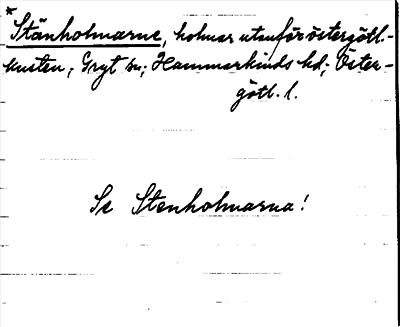 *
Stänholmarne, holmar utanför östergötl.-
kusten, Gryt sn; Hammarkinds hd; Öster-
götl. l.
Se Stenholmarna!